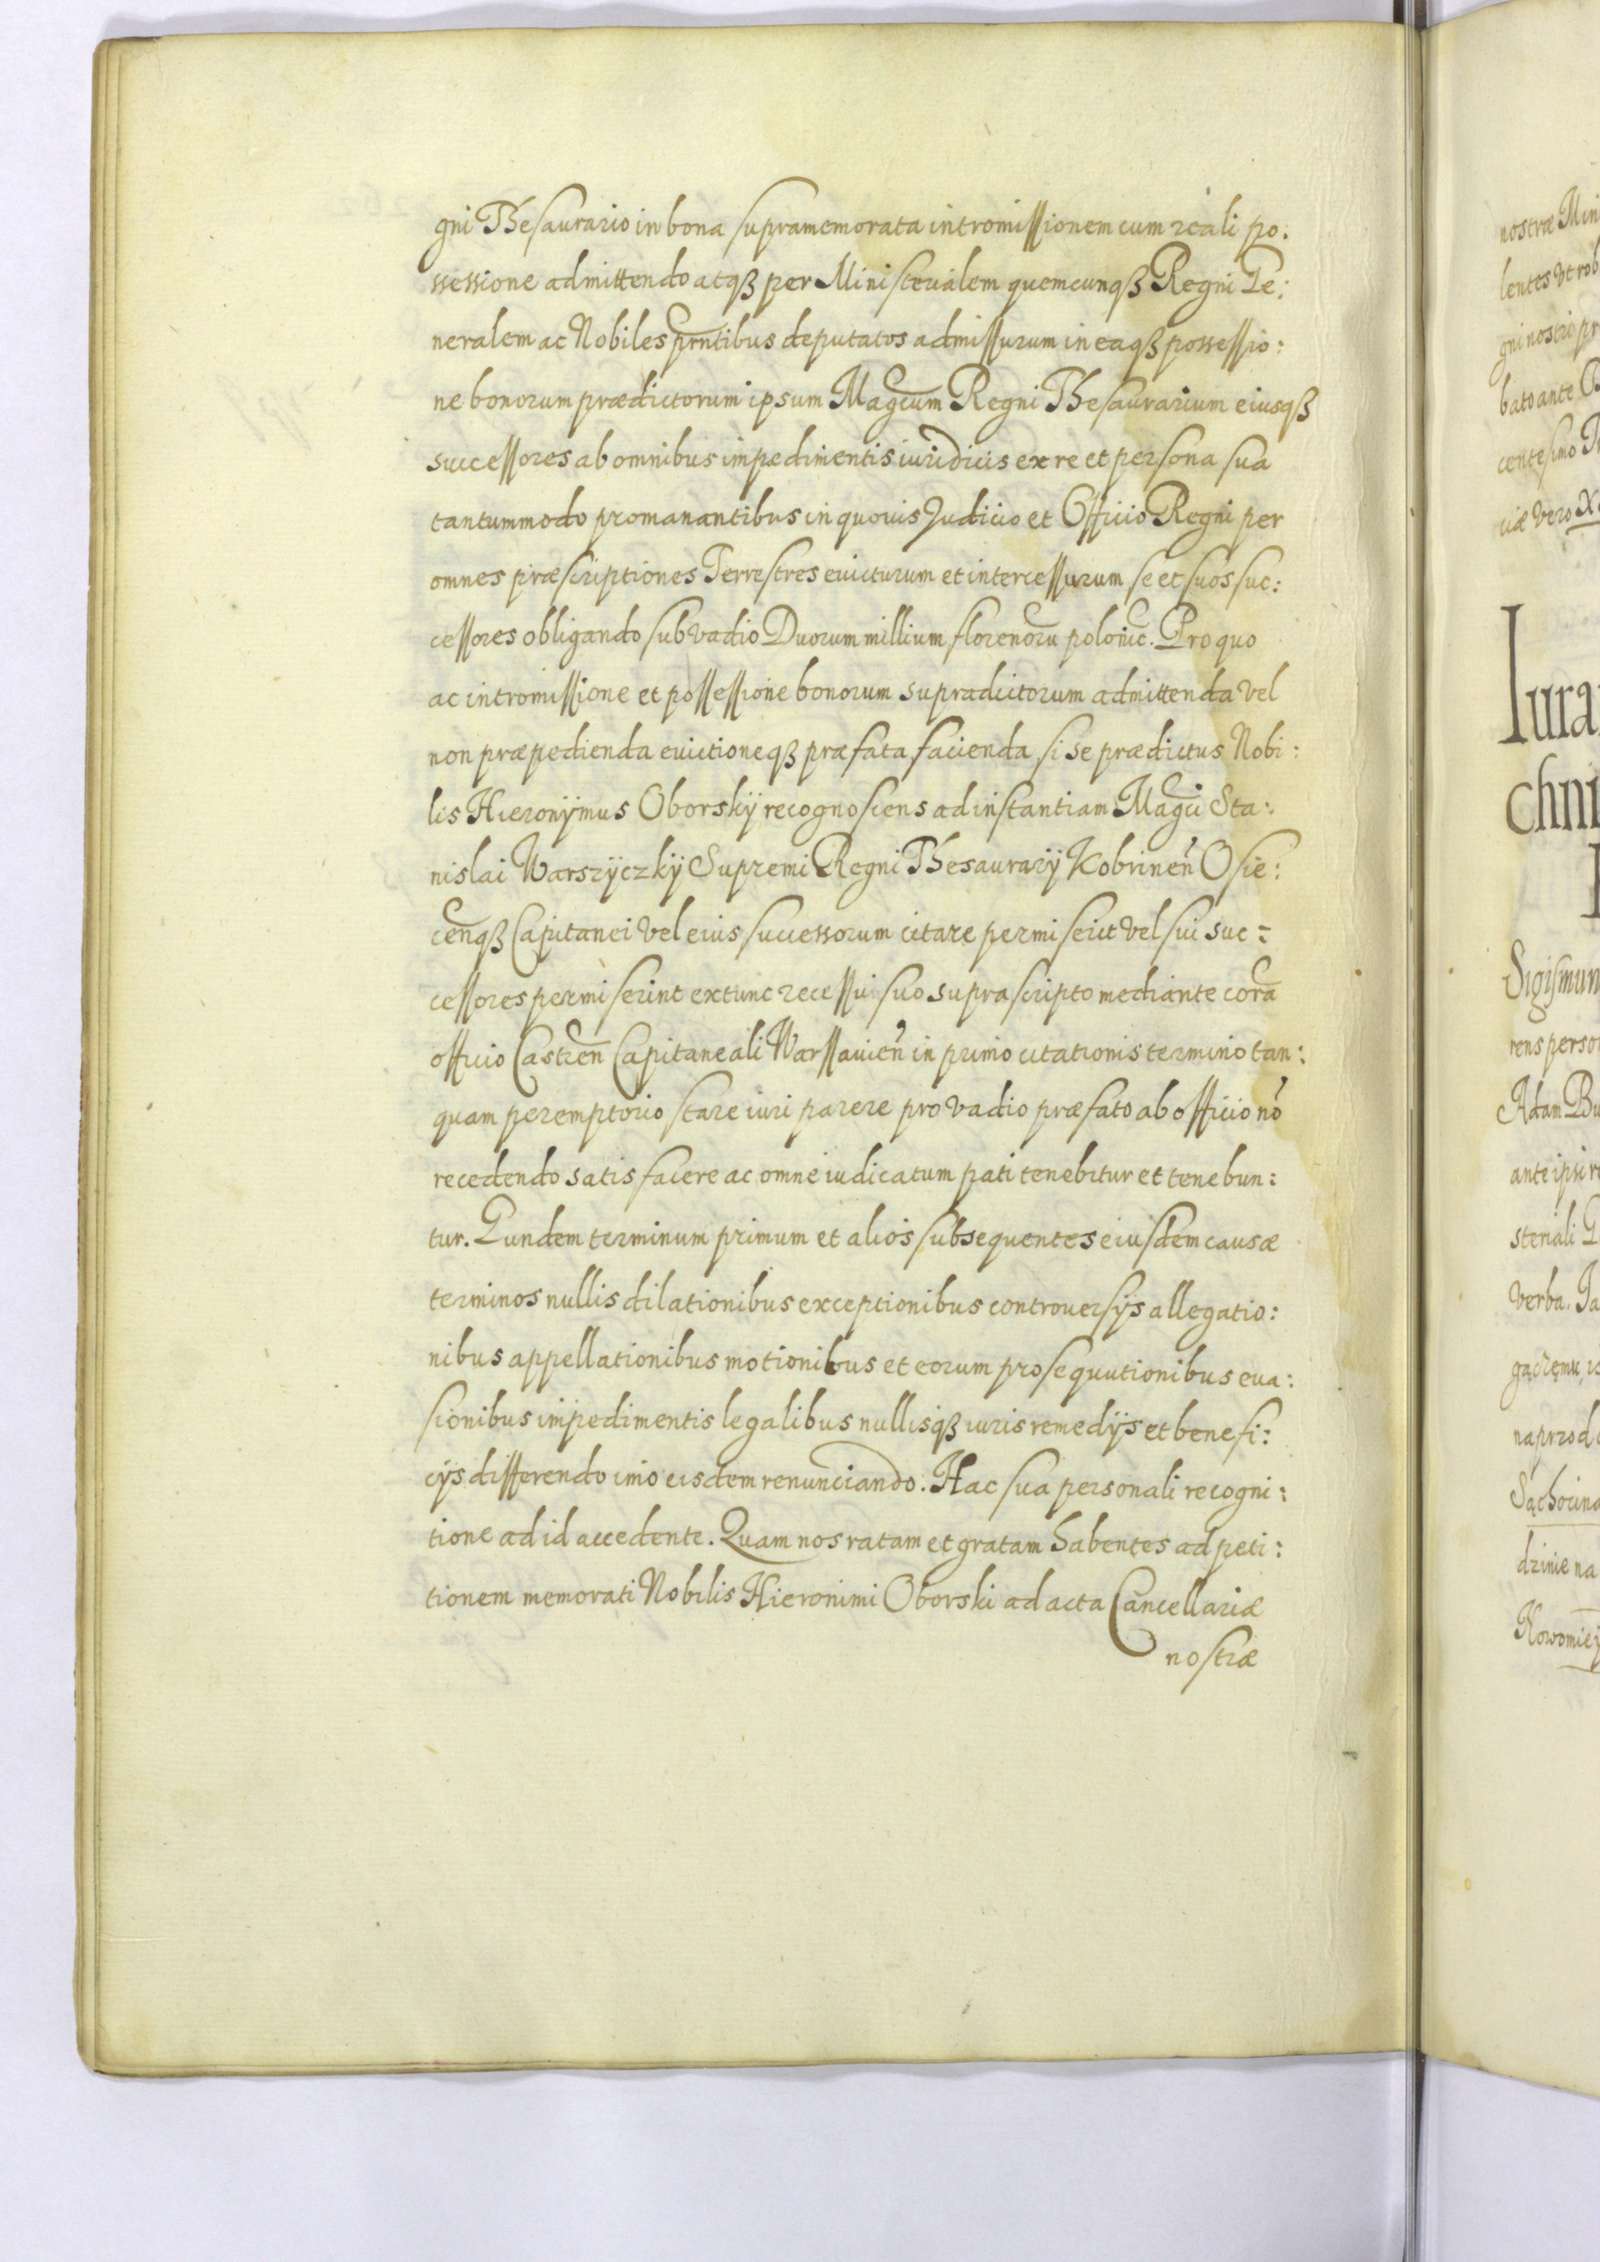 gni Thesaurario in bona supramemorata intromissionem cum reali po:
ssessione admittendo atqȝ per Ministerialem quemcunqȝ Regni Ge:
neralem ac Nobiles prntibus deputatos admissurum in eaqȝ possessio:
ne bonorum prædictorum ipsum Magcum Regni Thesaurarium eiusqȝ
successores ab omnibus impedimentis iuridicis ex re et persona sua
tantummodo promanantibus in quovis Judicio et Officio Regni per
omnes præscriptiones Terrestres evicturum et intercessurum se et suos suc:
cessores obligando sub vadio Duorum millium florenoru polonic. Pro quo
ac intromissione et possessione bonorum supradictorum admittenda vel
non præpedienda evictioneqȝ præfata facienda si se prædictus Nobi:
lis Hieronÿmus Oborskÿ recognoscens ad instantiam Magci Sta:
nislai Warszÿczkÿ Supremi Regni Thesaurarÿ Kobrinen Osie:
cenqȝ Capitanei vel eius successorum citare permiserit vel sui suc:
cessores permiserint extunc recessui suo suprascripto mediante cora
officio Castren Capitaneali Warssavien in primo citationis termino tan:
quam peremptorio stare iuri parere pro vadio præfato ab officio no
recedendo satisfacere ac omne iudicatum pati tenebitur et tenebun:
tur. Eundem terminum primum et alios subsequentes eiusdem causæ
terminos nullis dilationibus exceptionibus controversÿs allegatio:
nibus appellationibus motionibus et eorum prosequutionibus eva:
sionibus impedimentis legalibus nullisqȝ iuris remedÿs et benefi:
cÿs differendo imo eisdem renunciando. Hac sua personali recogni:
tione ad id accedente. Quam nos ratam et gratam habentes ad peti:
tionem memorati Nobilis Hieronimi Oborski ad acta Cancellariæ
nostræ
nostræ
lentes
gni nostri
bato ante
centesimo
vero
chni
Adam
ante ipsi
verba.
naprzod
dzinie na